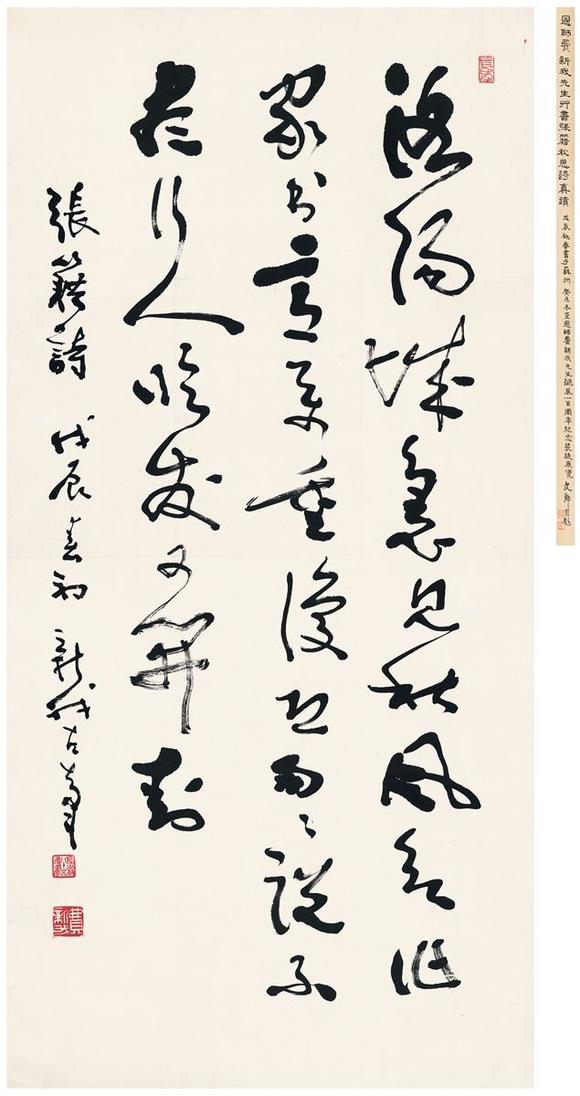 洛陽城裏見秋風欲作
家書意萬重復恐匆〻說不
盡行人臨發又開封
張籍詩 戊辰春初 新我左筆
費新我
恩師費新我先生艸書張籍秋思詩真蹟 戊辰初春書于蘇州 癸未冬至恩師費新我先生誕辰一百周年紀念裝裱展覽